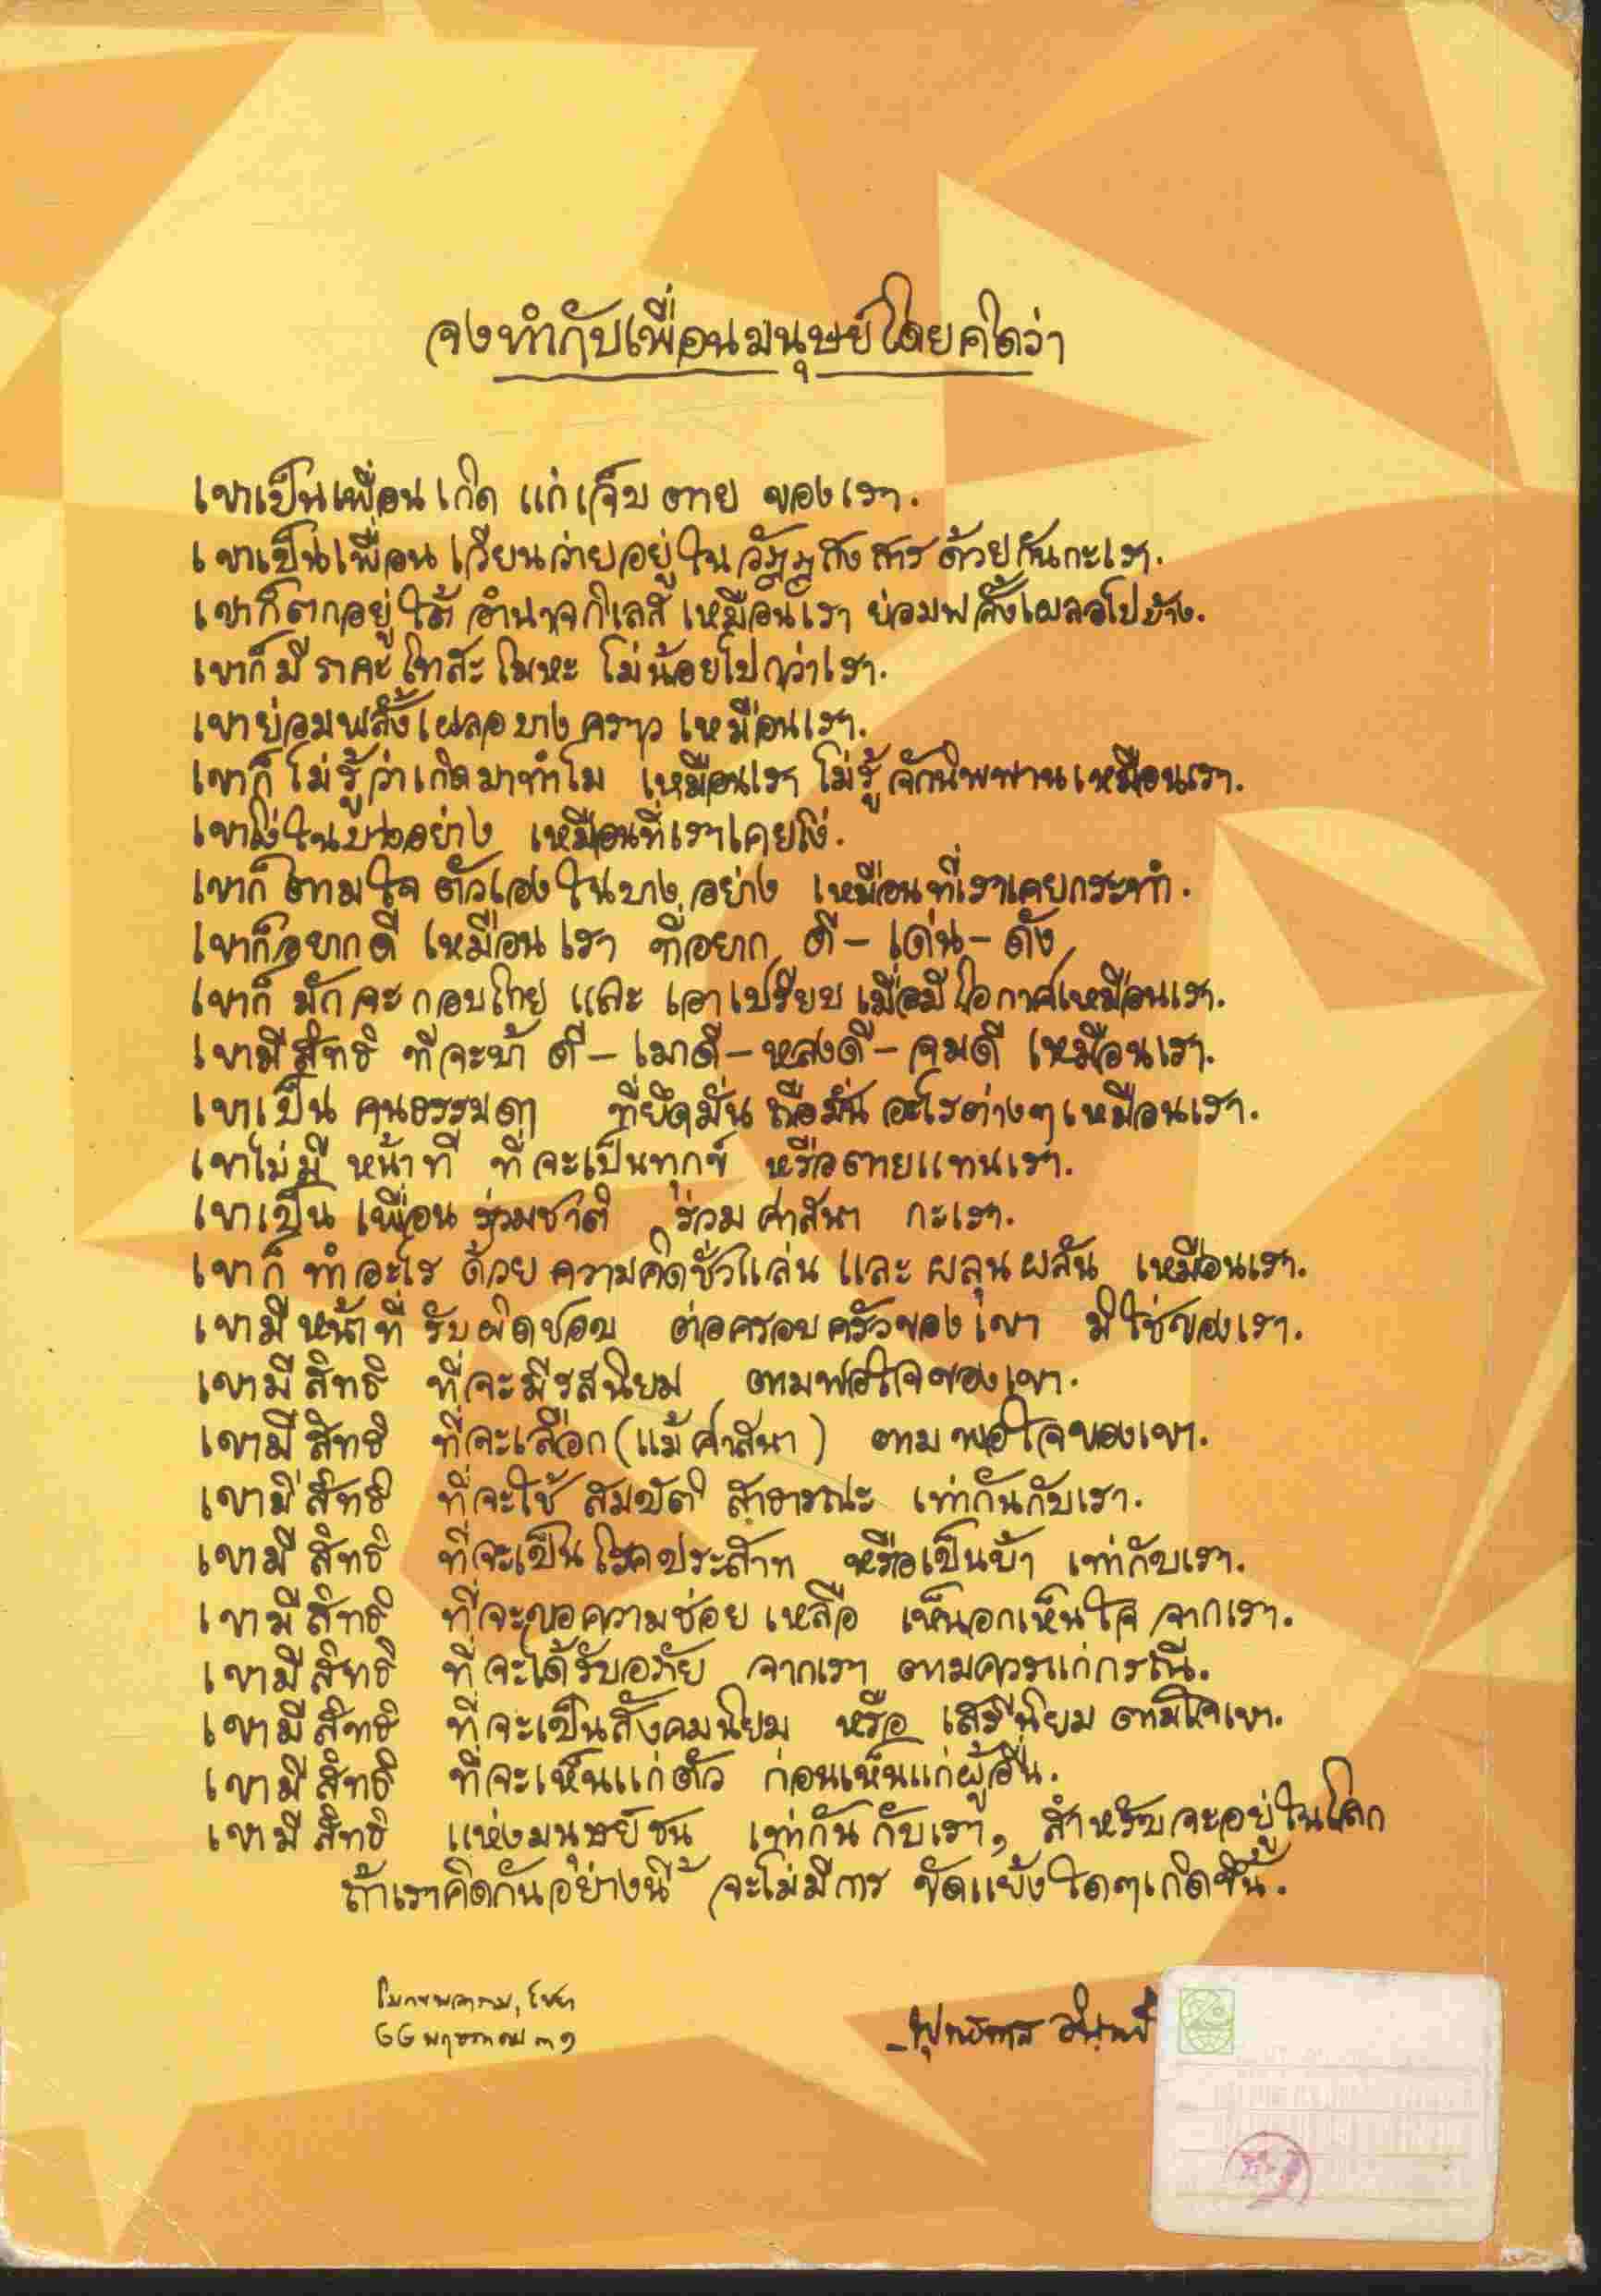 จงทำกับเพื่อนมนุษย์โดยคิดว่า
เขาเป็นเพื่อน เกิด แก่ เจ็บ ตาย ของเรา.
เขาเป็นเพื่อน เวียนว่ายอยู่ ใน วัฏฏสงสาร ด้วยกันกะเรา.
เขาก็ตกอยู่ใต้ อำนาจกิเลส เหมือนเรา ย่อมพลั้งเผลอไปบ้าง.
เขาก็ มี ราคะ โทสะ โมหะ ไม่น้อยไปกว่าเรา.
เขาย่อมพลั้งเผลอ บาง คราว เหมือนเรา.
เขาก็ ไม่รู้ว่า เกิดมาทำไม เหมือนเรา ไม่รู้ จักนิพพาน เหมือนเรา.
เขาโง่ ในบางอย่าง เหมือนที่เราเคยโง่.
เขาก็ ตามใจ ตัวเอง ในบาง อย่าง เหมือน ที่เราเคยกระทำ.
เขาก็อยากดี เหมือน เรา ที่อยาก ดี – เด่น – ดัง
เขาก็ มัก จะ กอบโกย และ เอาเปรียบ เมื่อมี โอกาสเหมือนเรา.
เขามี สิทธิ ที่จะบ้า ดี – เมาดี – หลงดี – จมดี เหมือนเรา.
เขาเป็น คนธรรมดา ที่ยึดมั่น ถือมั่น อะไรต่างๆ เหมือนเรา.
เขาไม่มี หน้าที่ ที่จะเป็นทุกข์ หรือตายแทนเรา.
เขาเป็น เพื่อน ร่วมชาติ ร่วม ศาสนา กะเรา.
เขาก็ ทำอะไร ด้วย ความคิดชั่วแล่น และ ผลุนผลัน เหมือนเรา.
เขามี หน้าที่ รับผิดชอบ ต่อครอบครัวของเขา มิใช่ของเรา.
เขามี สิทธิ ที่จะมีรสนิยม ตามพอใจของเขา.
เขามี สิทธิ ที่จะเลือก (แม้ศาสนา) ตาม พอใจของเขา.
เขามี สิทธิ ที่จะใช้ สมบัติ สาธารณะ เท่ากันกับเรา.
เขามี สิทธิ ที่จะเป็น โรคประสาท หรือเป็นบ้า เท่ากับเรา.
เขามี สิทธิ ที่จะขอความช่วย เหลือ เห็นอกเห็นใจ จากเรา.
เขามี สิทธิ ที่จะได้รับอภัย จากเรา ตามควรแก่กรณี.
เขามี สิทธิ ที่จะเป็นสังคมนิยม หรือ เสรีนิยม ตามใจเขา.
เขามี สิทธิ ที่จะเห็นแก่ตัว ก่อนเห็นแก่ผู้อื่น.
เขามี สิทธิ แห่งมนุษย์ชน เท่ากัน กับเรา, สำหรับจะอยู่ในโลก
ถ้าเราคิดกันอย่างนี้ จะไม่มีการ ขัดแย้งใดๆเกิดขึ้น.
โมกขพลาราม, ไชยา
๒๒ พฤษภาคม ๓๑
พุทธทาส อินฺทปญฺ